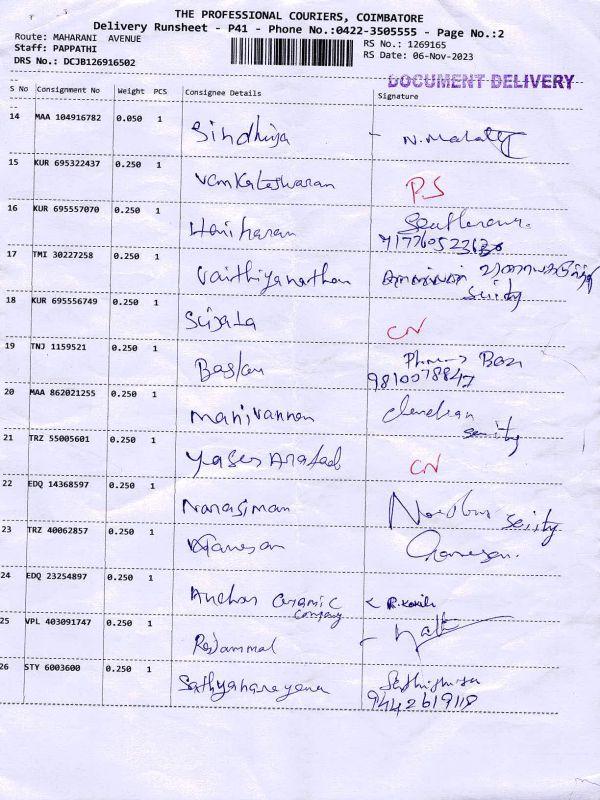 THE PROFESSIONAL COURIERS, COIMBATORE
Delivery Runsheet - P41 - Phone No.:0422-3505555 - Page No.:2
Route: MAHARANI AVENUE RS No.: 1269165
Staff: PAPPATHI RS Date: 06-Nov-2023
DRS No.: DCJB126916502
DOCUMENT DELIVERY
S No Consignment No Weight PCS Consignee Details Signature
14 MAA 104916782 0.050 1 Sindhiya
15 KUR 695322437 0.250 1 Venkateshwaran PS
16 KUR 695557070 0.250 1 Hariharan
17 TMI 30227258 0.250 1 Vaithiyanathan
18 KUR 695556749 0.250 1 Sujata CN
19 TNJ 1159521 0.250 1
9810078847
20 MAA 862021255 0.250 1 Manivannan
21 TRZ 55005601 0.250 1 CN
22 EDQ 14368597 0.250 1
23 TRZ 40062857 0.250 1 Ganesan Ganesan.
24 EDQ 23254897 0.250 1 Anchor Ceramic
Company
25 VPL 403091747 0.250 1
26 STY 6003600 0.250 1 Sathyanarayana
9442619118